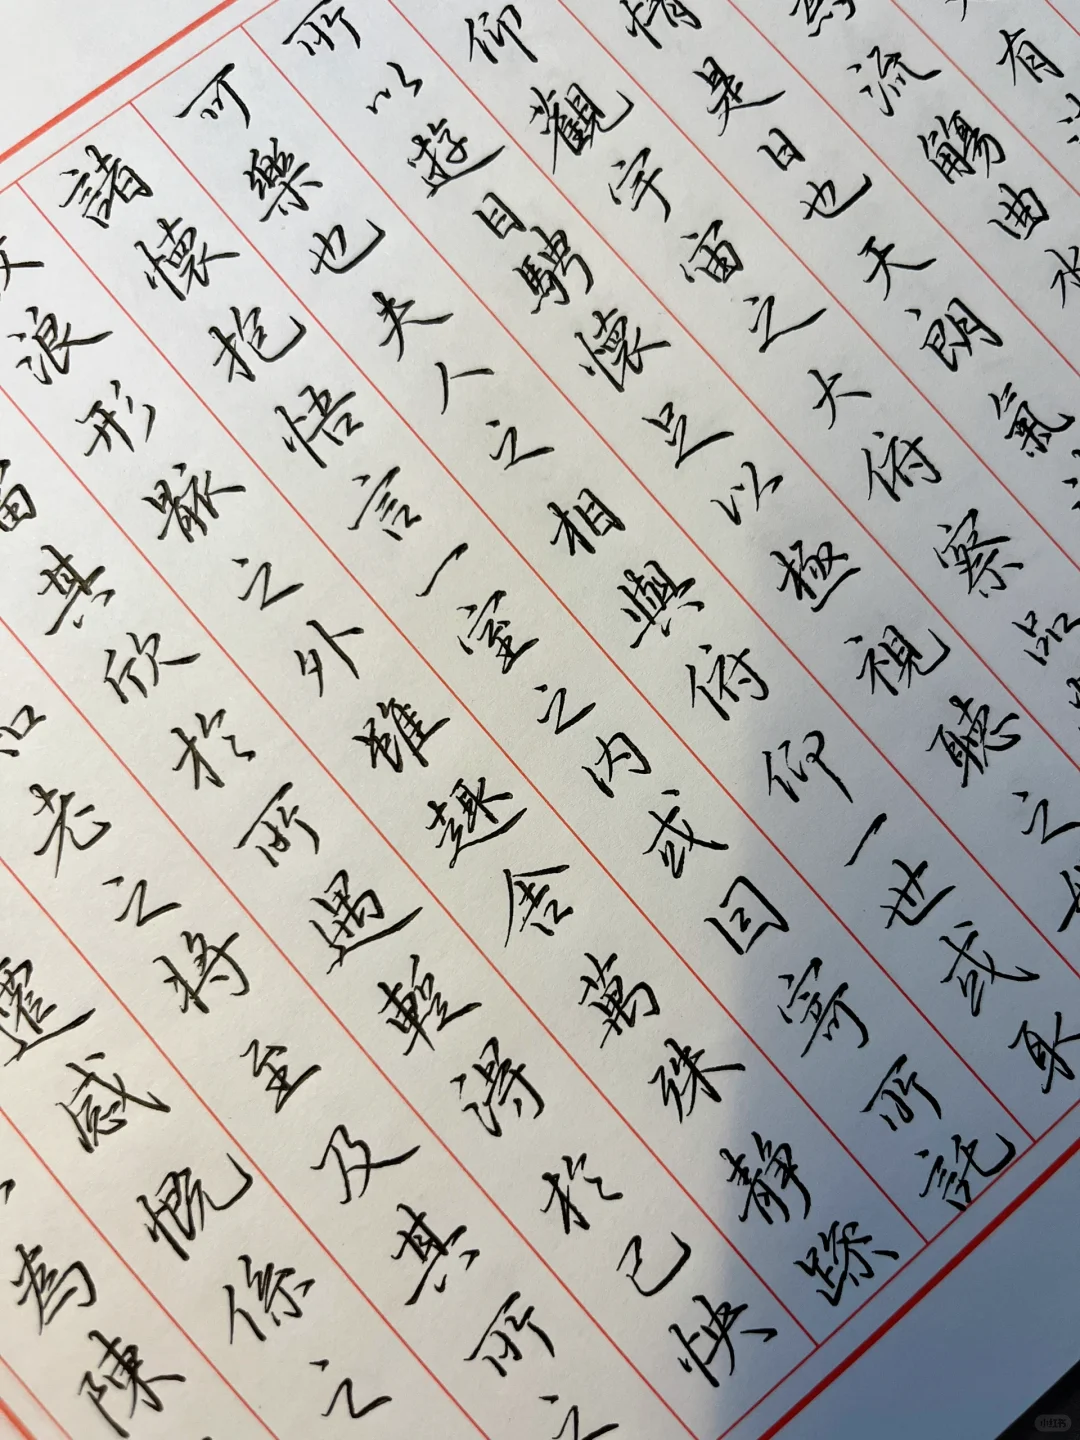 有
流觴曲水
情是日也天朗氣
仰觀宇宙之大俯察品
所以遊目騁懷足以極視聽之
可樂也夫人之相與俯仰一世或取
諸懷抱悟言一室之內或因寄所託
浪形骸之外雖趣舍萬殊靜躁
當其欣於所遇暫得於己快
老之將至及其所之
遷感慨係之
為陳